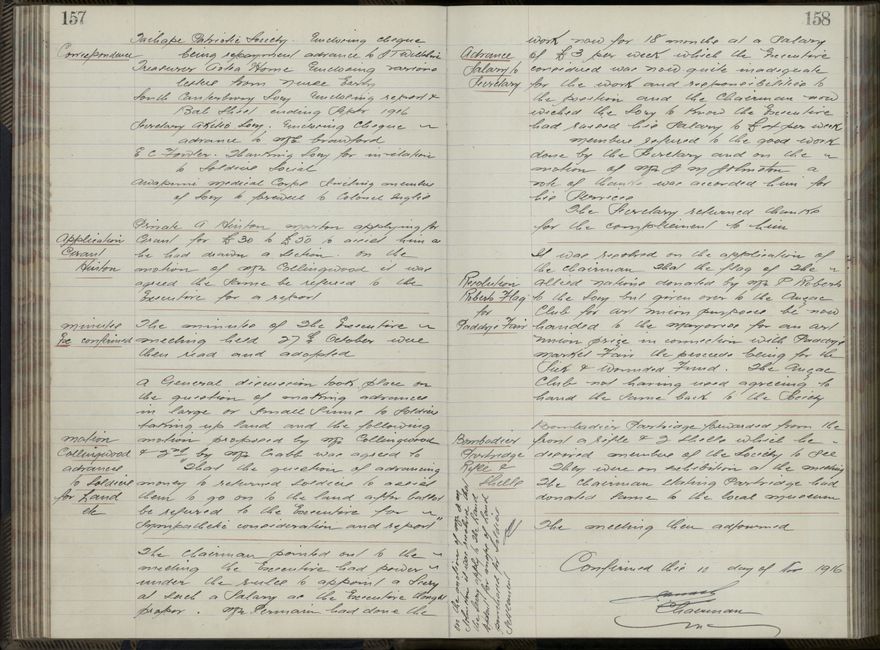 157
Taihape Patriotic Society. Enclosing cheque
Correspondence
being repayment advance to J
Treasurer Home Enclosing various
letters from nurse Early
South Canterbury Socy Enclosing report &
Bal Sheet ending Septr 1916
Secretary Akitio Socy. Enclosing cheque
advance to Crawford
E C Fowler. Thanking Socy for invitation
to Soldiers Social
Awapuni Medical Corps Inviting members
of Socy to farewell to Colonel
Application
Grant
Hinton
Private A Hinton Marton applying for
Grant for £30 to £50 to assist him as
he had drawn a section. On the
motion of Mr Collingwood it was
agreed the same be referred to the
Executive for a report
minutes
Exe confirmed
The minutes of the Executive
meeting held 27th October were
then read and adopted
motion
Collingwood
advances
to Soldiers
for Land
etc
A General discussion took place on
the question of making advances
in large or small sums to soldiers
taking up land and the following
motion proposed by Mr Collingwood
& 2nd by Mr Crabb was agreed to
"That the question of advancing
money to returned soldiers to assist
them to go on to the land after ballot
be referred to the Executive for
sympathetic consideration and report"
The Chairman pointed out to the
meeting the Executive had power
under the rules to appoint a Secy
at such a salary as the Executive thought
proper. Mr Permain had done the
158
Advance
Salary to
Secretary
work now for 18 months at a salary
of £3 per week which the Executive
considered was now quite inadequate
for the work and responsibilities to
the position and the Chairman now
wished the Socy to know the Executive
had raised his salary to per week
members referred to the good work
done by the Secretary and on the
motion of Mr J M Johnston a
vote of thanks was accorded him for
his services
The Secretary returned thanks
for the compliment to him
Resolution
Roberts Flag
for
Paddys Fair
It was resolved on the application of
the Chairman that the flag of the
allied nations donated by Mr P Roberts
to the Socy but given over to the Anzac
Club for art union purposes be now
handed to the mayoress for an art
union prize in connection with Paddys
market Fair the proceeds being for the
Sick & Wounded Fund. The Anzac
Club not having used agreeing to
hand the same back to the Society
Bombadier
Partridge
Rifle &
Shells
Bombadier Partridge forwarded from the
front a rifle & 2 shells which he
desired members of the Society to see
They were on exhibition at the meeting
The Chairman stating Partridge had
donated same to the local museum
The meeting then adjourned
Confirmed this 10 day of Nov 1916
Chairman
on the motion of Mr
the Secy apply to the Lands
purchased for Soldiers
Settlement